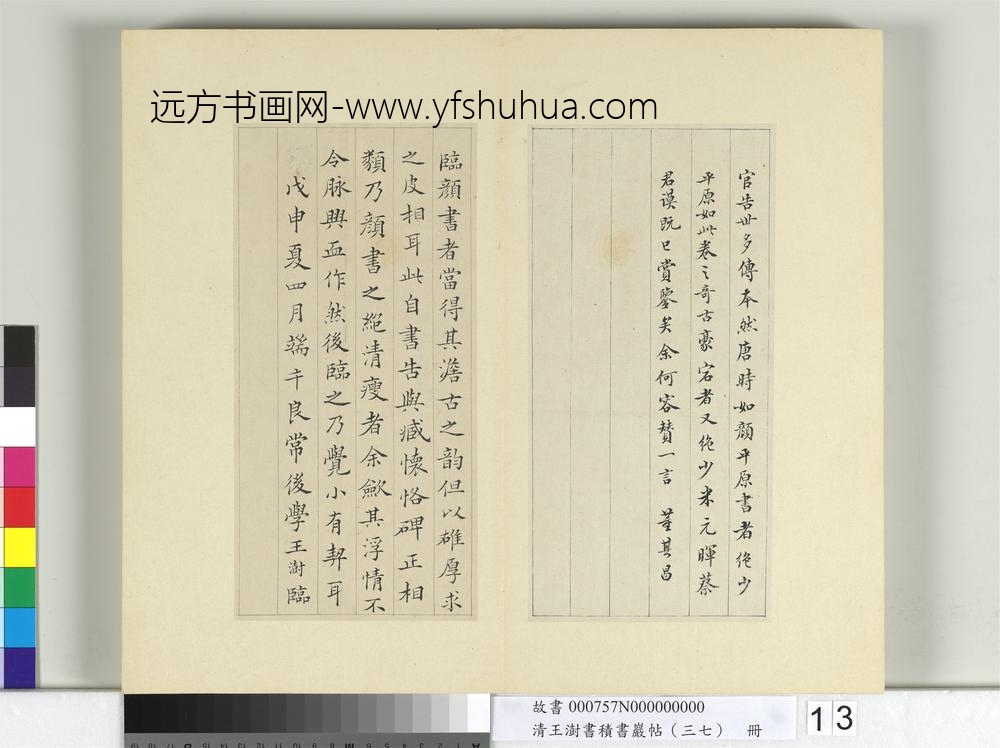 远方书画网-www.yfshuhua.com
官告世多傳本然唐時如顏平原書者絶少
平原如此卷之奇古豪宕者又絶少米元暉蔡
君謨既已賞鑒矣余何容贅一言　董其昌
臨顏書者當得其澹古之韵但以雄厚求
之皮相耳此自書告與臧懷恪碑正相
類乃顏書之絶清瘦者余歛其浮情不
令脉興血作然後臨之乃覺小有契耳
戊申夏四月端午良常後學王澍臨
故書 000757N000000000
清王澍書積書巖帖（三七）　冊
13